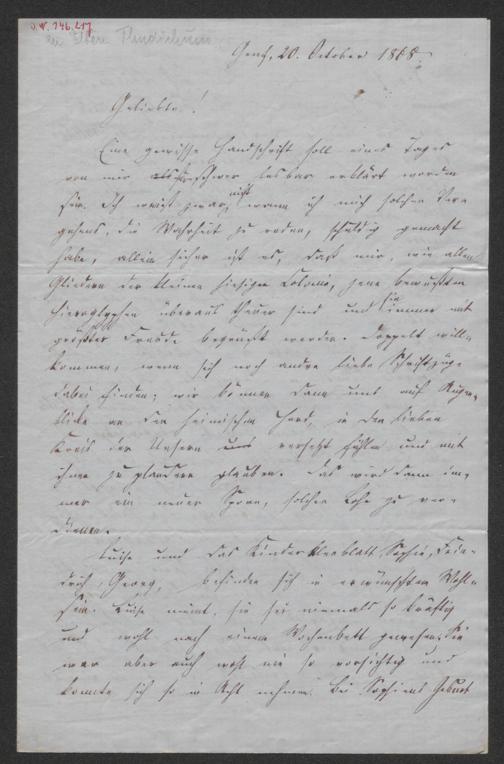 J.N. 146.217
Genf, 20. October 1868.
Geliebte!
Eine gewisse Handschrift soll eines Tages
von mir als schwer lesbar erklärt worden
sein. Ich weiß zwar nicht, wann ich mich solchen Ver-
gehens, die Wahrheit zu reden, schuldig gemacht
habe, allein sicher ist es, daß mir, wie allen
Gliedern der kleinen hiesigen Colonie, jene bewußten
Hieroglyphen überaus theuer sind und sie immer mit
größter Freude begrüßt werden. Doppelt will-
kommen, wenn sich noch andre liebe Schriftzüge
dabei finden; wir können dann uns auf Augen-
blicke an den heimischen Herd, in den lieben
Kreis der Unsern uns versetzt fühlen und mit
ihnen zu plaudern glauben. Das wird dann im-
mer ein neuer Sporn, solchen Lohn zu ver-
dienen.
Luise und das Kinderkleeblatt Sophie, Fried-
rich, Georg, befinden sich in erwünschtem Wohl-
sein. Luise meint, sie sei niemals so kräftig
und wohl nach einem Wochenbett gewesen. Sie
war aber auch wohl nie so vorsichtig und
konnte sich so in Acht nehmen. Bei Sophiens Geburt